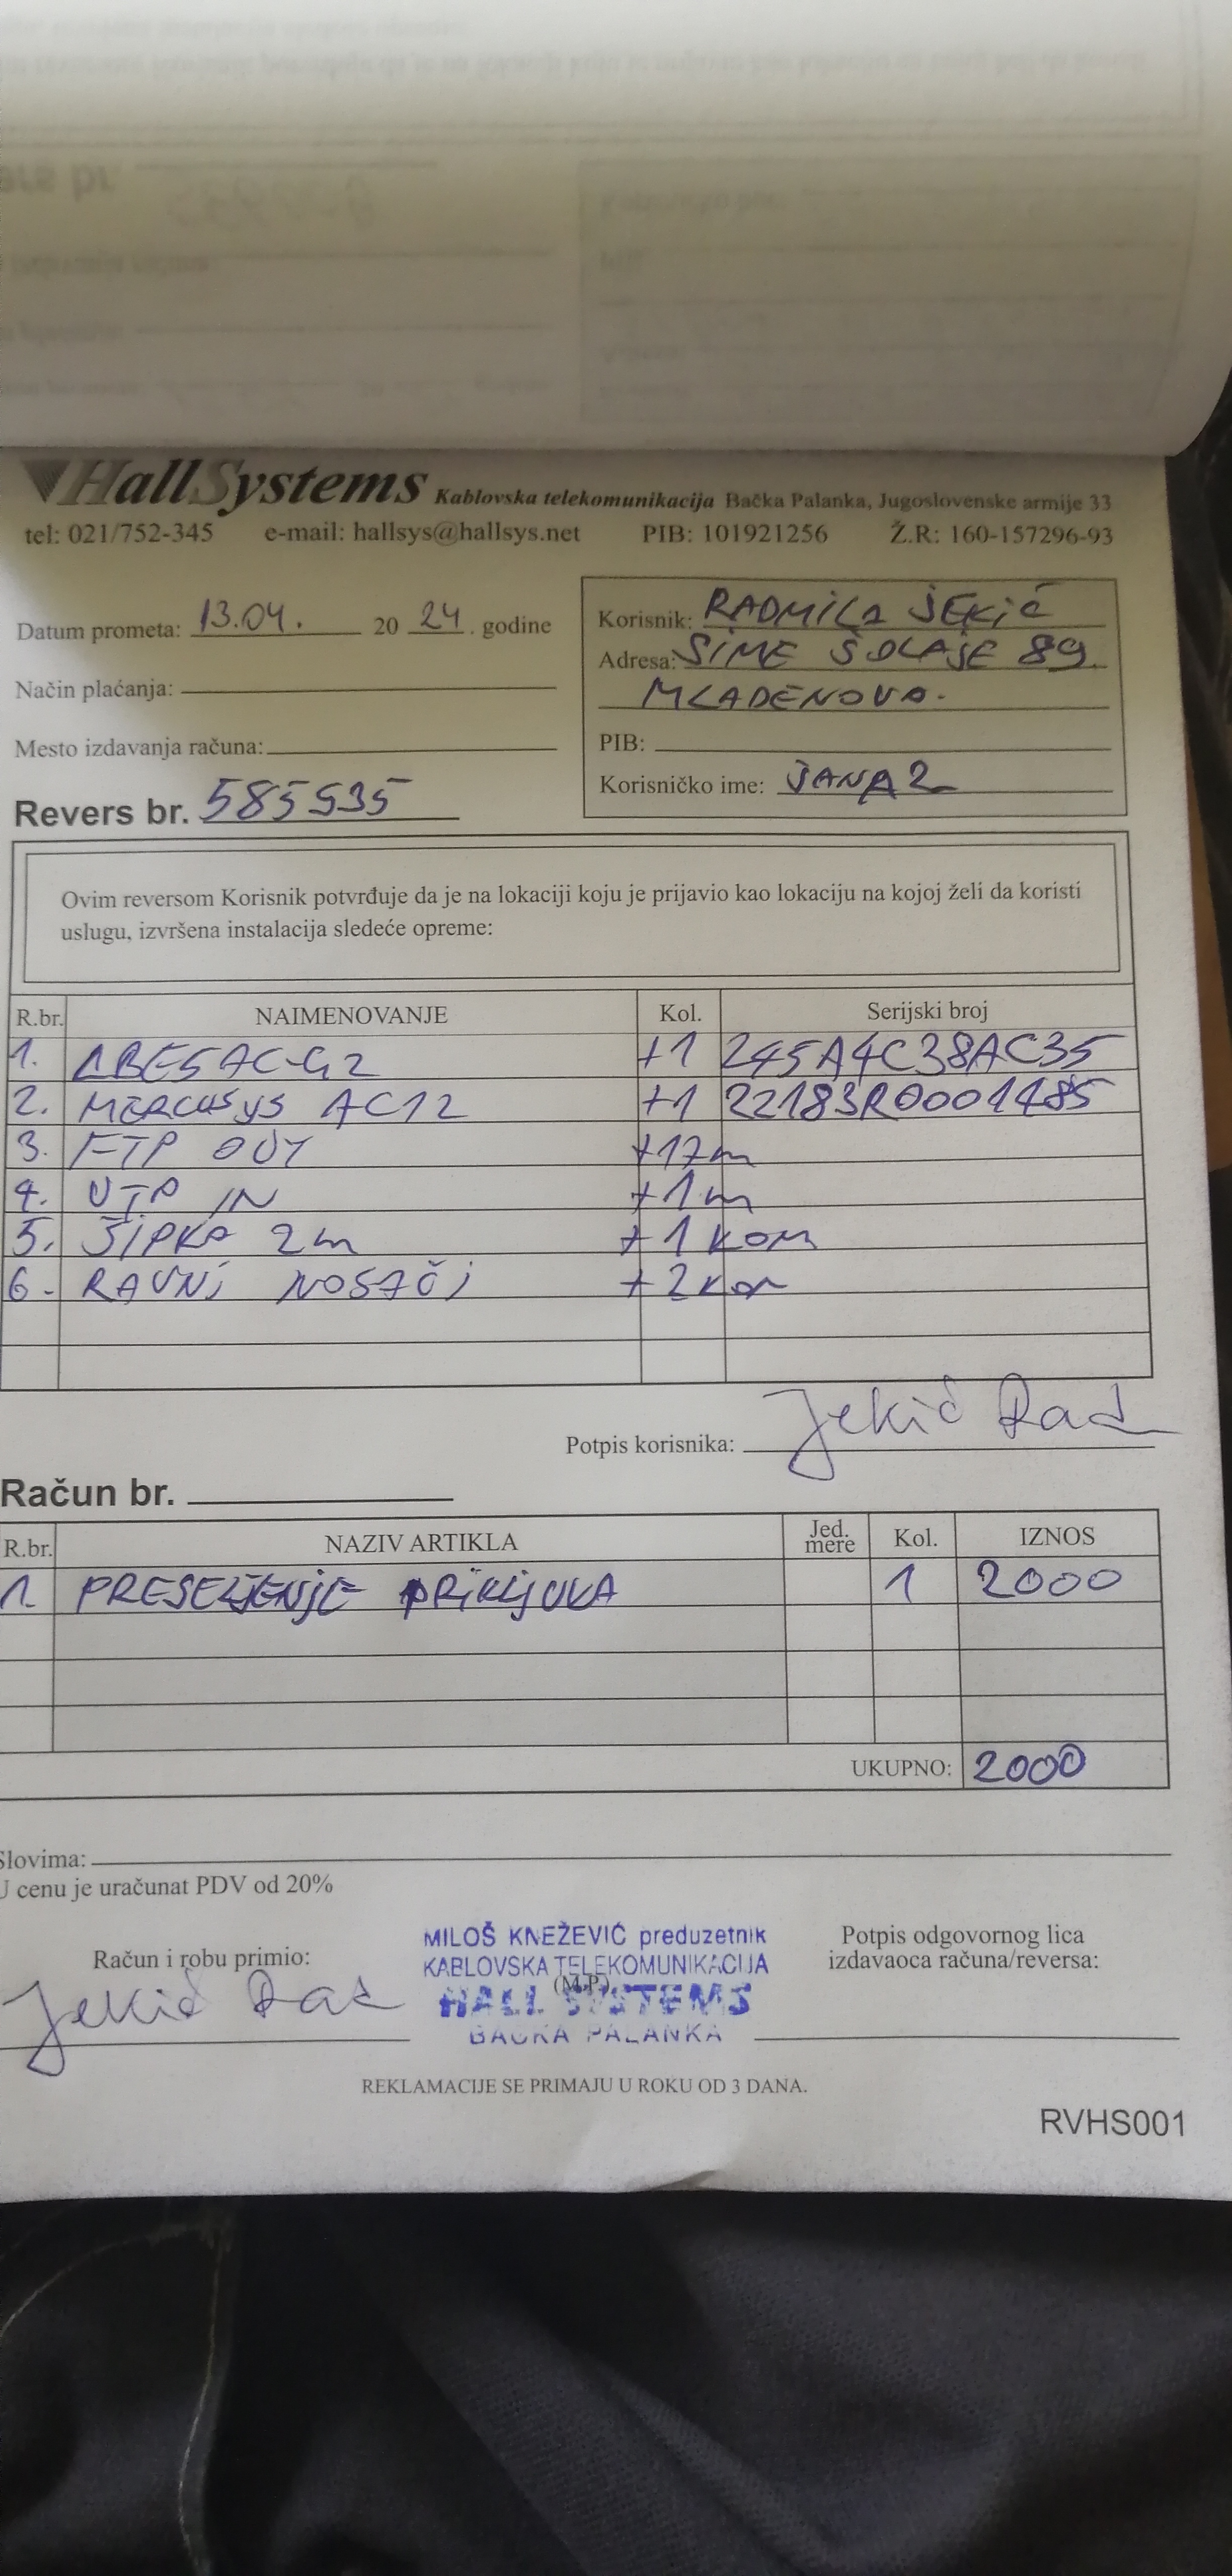 HallSystems Kablovska telekomunikacija Bačka Palanka, Jugoslovenske armije 33
tel: 021/752-345 e-mail: hallsys@hallsys.net PIB: 101921256 Ž.R: 160-157296-93
Datum prometa: 13.04. 20 24 . godine
Način plaćanja:
Mesto izdavanja računa:
Revers br. 585535
Korisnik: RADMILA JEKIĆ
Adresa: SIME ŠOLAJE 89
MLADENOVO.
PIB:
Korisničko ime: JANA2
Ovim reversom Korisnik potvrđuje da je na lokaciji koju je prijavio kao lokaciju na kojoj želi da koristi
uslugu, izvršena instalacija sledeće opreme:
R.br. NAIMENOVANJE Kol. Serijski broj
1. LBE5AC-G2 +1 245A4C38AC35
2. MERCUSYS AC12 +1 22183R0001485
3. FTP OUT +17m
4. UTP IN +1m
5. ŠIPKA 2m +1 kom
6. RAVNI NOSAČI +2 kom
Potpis korisnika: Jekić Rad
Račun br.
R.br. NAZIV ARTIKLA Jed. mere Kol. IZNOS
1. PRESELJENJE PRIKLJUKA 1 2000
UKUPNO: 2000
Slovima:
U cenu je uračunat PDV od 20%
Račun i robu primio:
Jekić Rad
MILOŠ KNEŽEVIĆ preduzetnik
KABLOVSKA TELEKOMUNIKACIJA
(M.P.)
HALL SYSTEMS
BAČKA PALANKA
Potpis odgovornog lica
izdavaoca računa/reversa:
REKLAMACIJE SE PRIMAJU U ROKU OD 3 DANA.
RVHS001